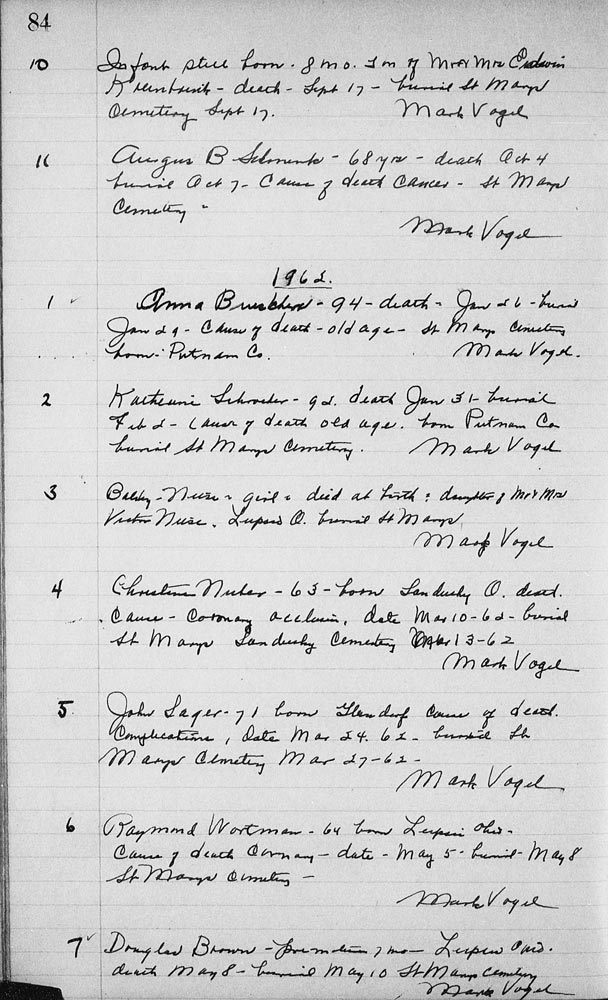 84
10 Infant still born - 8 mo. Son of Mr & Mrs Edwin
- death - Sept 17 - burial St Marys
Cemetery Sept 17. Mark Vogel
11 B - 68 yrs - death Oct 4
burial Oct 7 - Cause of death Cancer - St Marys
Cemetery -
Mark Vogel
1962.
1 Anna - 94 - death - Jan 26 - burial
Jan 29 - Cause of death - old age - St Marys Cemetery
born - Putnam Co. Mark Vogel.
2 Katherine Schroeder - 92. death Jan 31 - burial
Feb 2 - Cause of death old age. born Putnam Co
burial St Marys Cemetery. Mark Vogel
3 Baby - - girl - died at birth - daughter of Mr & Mrs
Victor . Leipsic O. burial St Marys
Mark Vogel
4 Christina - 63 - born Sandusky O. death.
Cause - Coronary occlusion, date Mar 10 - 62 - burial
St Marys Sandusky Cemetery Mar 13 - 62
Mark Vogel
5 John Sager - 71 born Glandorf Cause of death.
Complications, date Mar 24. 62 - burial St
Marys Cemetery Mar 27 - 62 -
Mark Vogel
6 Raymond Wortman - 64 born Leipsic Ohio -
Cause of death Coronary - date - May 5 - burial - May 8
St Marys Cemetery -
Mark Vogel
7 Douglas Brown - premature 7 mo - Leipsic
death May 8 - burial May 10 St Marys Cemetery
Mark Vogel